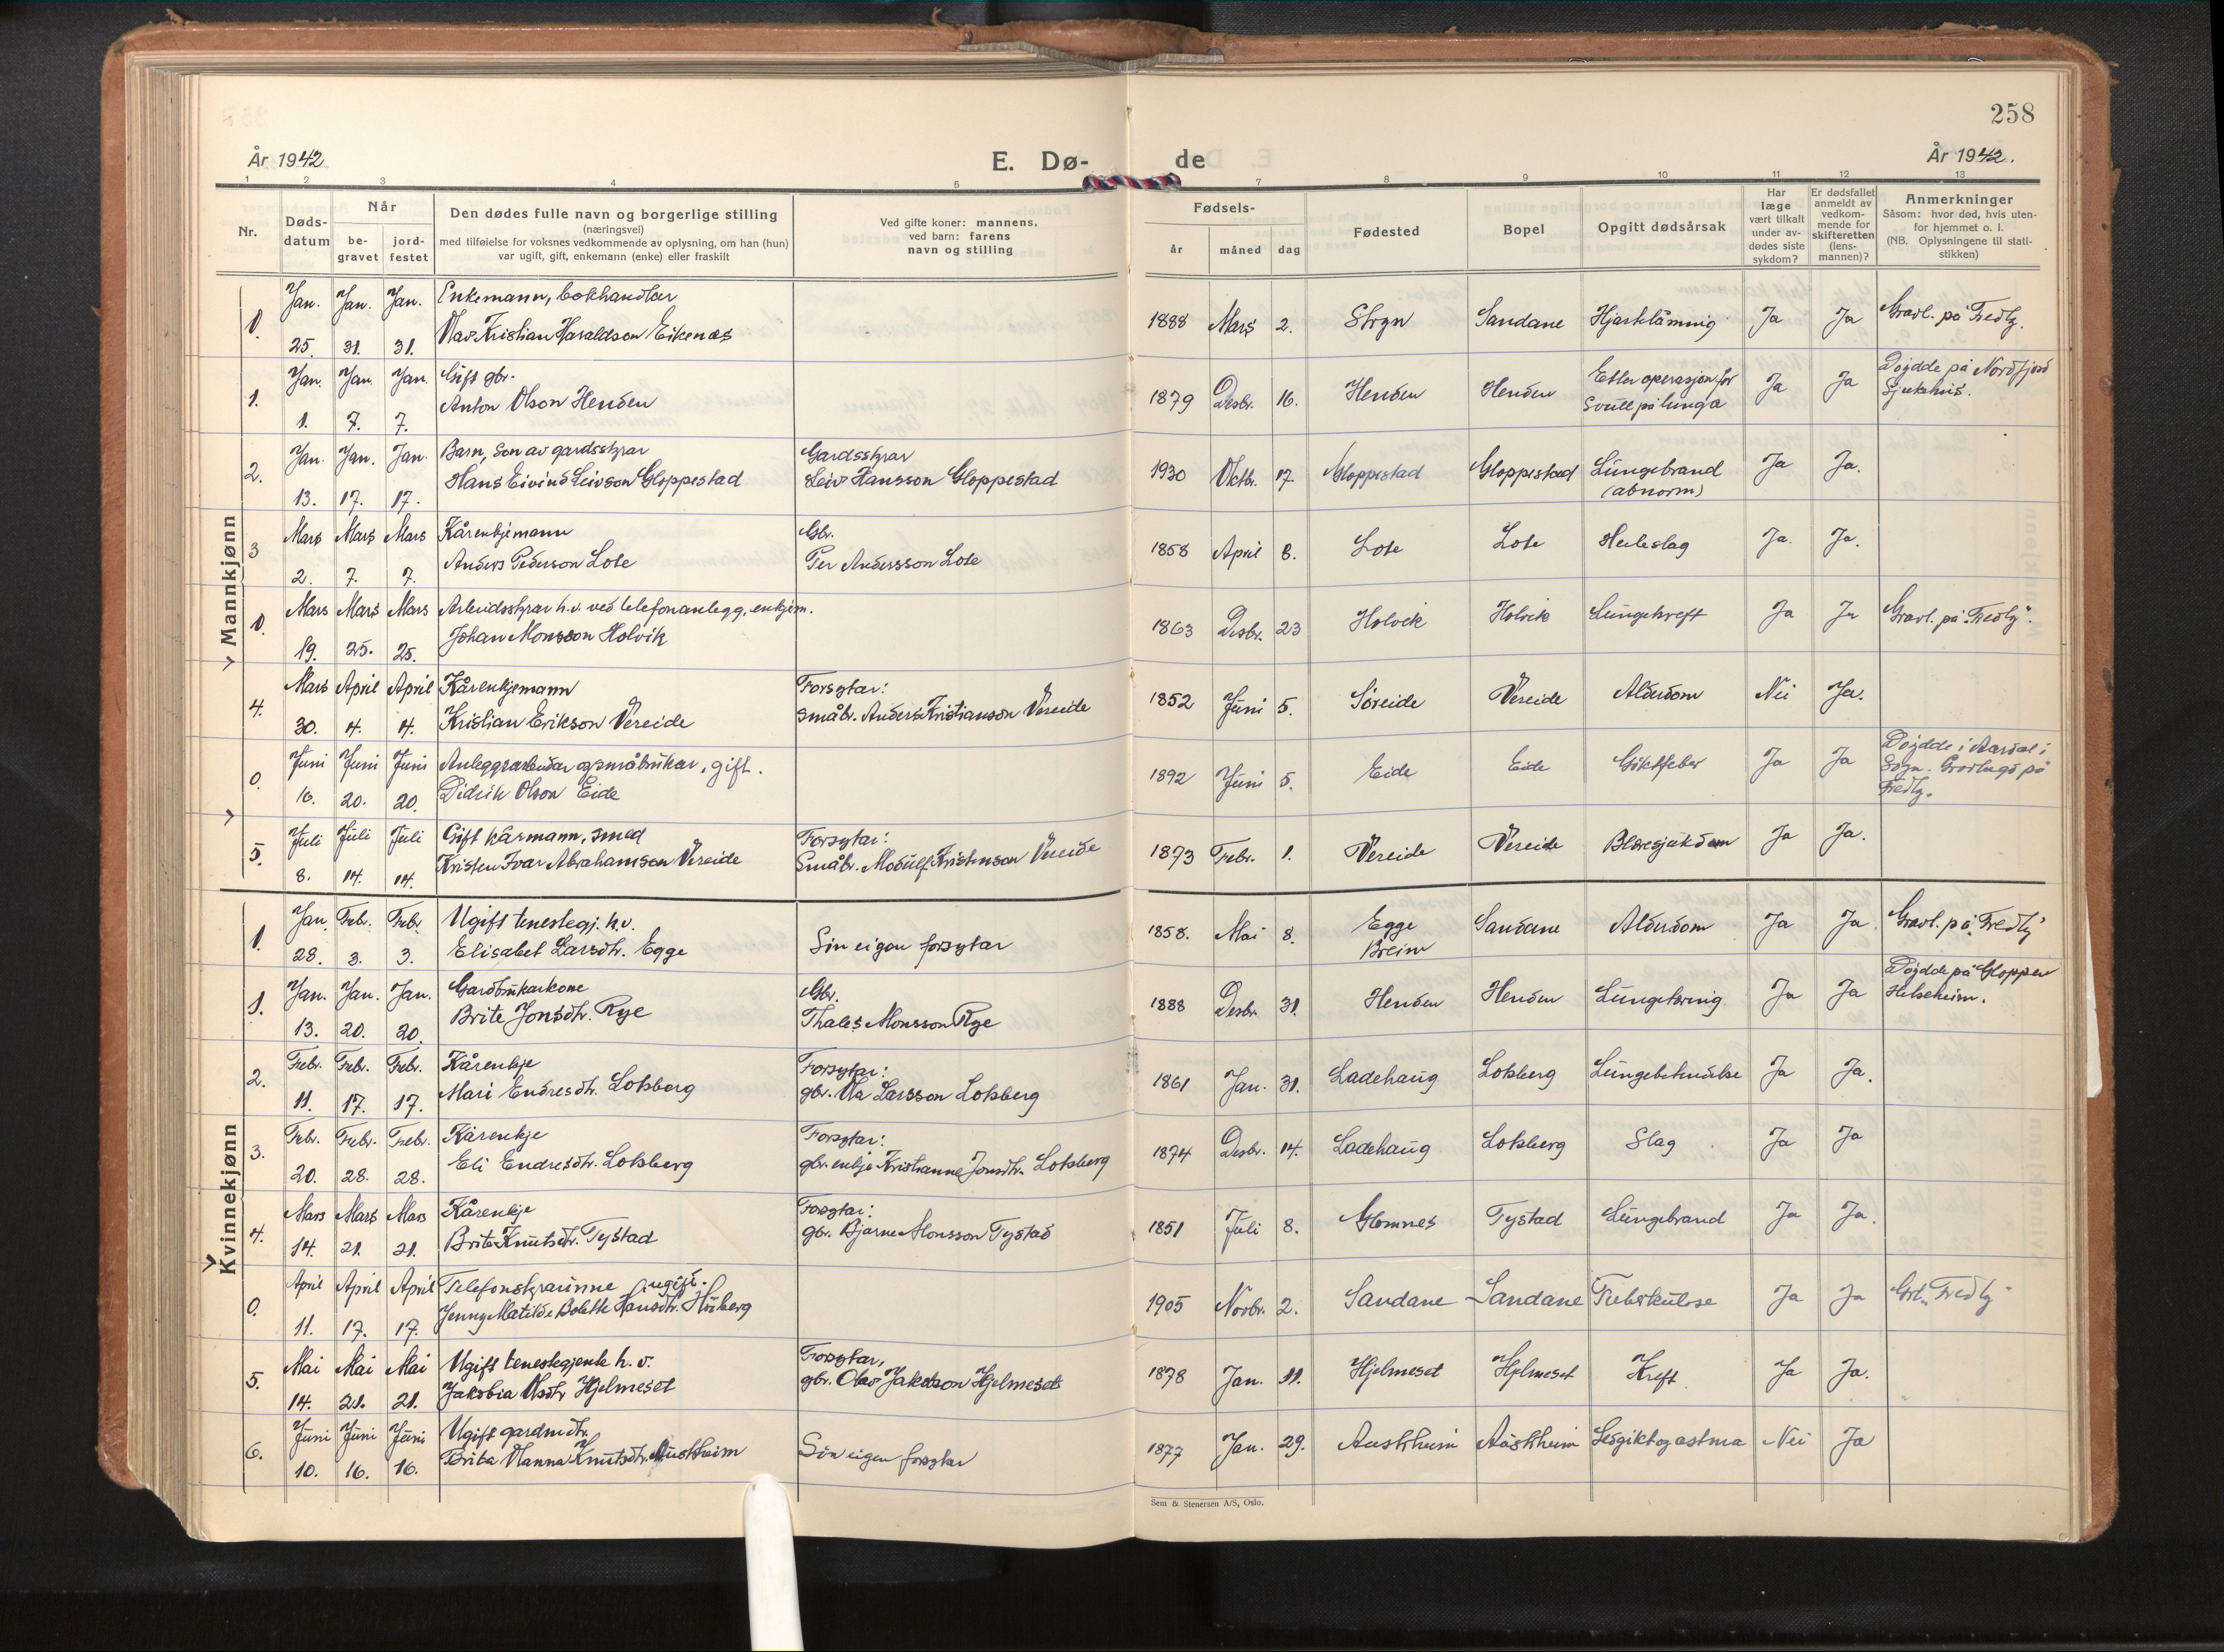 258
År 1942
E. Dø-
de
År 1942.
1 2 3 4 5 7 8 9 10 11 12 13
Nr.
Døds-
datum
Når
be-
gravet
jord-
festet
Den dødes fulle navn og borgerlige stilling
(næringsvei)
med tilføielse for voksnes vedkommende av oplysning, om han (hun)
var ugift, gift, enkemann (enke) eller fraskilt
Ved gifte koner: mannens,
ved barn: farens
navn og stilling
Fødsels-
år måned dag
Fødested
Bopel
Opgitt dødsårsak
Har
læge
vært tilkalt
under av-
dødes siste
sykdom?
Er dødsfallet
anmeldt av
vedkom-
mende for
skifteretten
(lens-
mannen)?
Anmerkninger
Såsom: hvor død, hvis uten-
for hjemmet o. l.
(NB. Oplysningene til stati-
stikken)
Mannkjønn
0. Jan. 25. Jan. 31. Jan. 31. Enkemann, bokhandlar
Olav Kristian Haraldson Eikenæs
1888 Mars 2. Stryn Sandane Hjarteläming Ja Ja Gravl. på Fredly.
1. Jan. 1. Jan. 7. Jan. 7. Gift gbr.
Anton Olson Henden
1879 Desbr. 16. Henden Henden Etter operasjon for
Svull på lunga Ja Ja Døydde på Nordfjord
Sjukehus.
2. Jan. 13. Jan. 17. Jan. 17. Barn, son av gardsstyrar
Hans Eivind Leivson Gloppestad
Gardsstyrar
Leiv Hansson Gloppestad
1930 Oktbr. 17. Gloppestad Gloppestad Lungebrand
(abnorm) Ja Ja.
3 Mars 2. Mars 7. Mars 7. Kårenkjemann
Anders Pederson Lote
Gbr.
Per Andersson Lote
1858 April 8. Lote Lote Heileslag Ja. Ja.
0. Mars 19. Mars 25. Mars 25. Arbeidsstyrar h.v. ved telefonanlegg, enkjem.
Johan Monsson Holvik
1863 Desbr. 23 Holvik Holvik Lungekreft Ja Ja Gravl. på "Fredly".
4. Mars 30. April 4. April 4. Kårenkjemann
Kristian Erikson Vereide
Forsytar:
småbr. Anders Kristianson Vereide
1852 Juni 5. Søreide Vereide Alderdom Nei Ja.
0. Juni 16. Juni 20. Juni 20. Anleggsarbeidar og småbrukar, gift.
Didrik Olson Eide
1892 Juni 5. Eide Eide Giktfeber Ja Ja Døydde i Aardal i
Sogn. Gravlagd på
Fredly.
5. Juli 8. Juli 14. Juli 14. Gift kårmann, smed
Kristen Ivar Abrahamson Vereide
Forsytar:
Småbr. Modulf Kristenson Vereide
1873 Febr. 1. Vereide Vereide Blæresjukdom Ja Ja.
Kvinnekjønn
1. Jan. 28. Feb. 3. Febr. 3. Ugift tenestegj. h.v.
Elisabet Larsdtr. Egge
Sin eigen forsytar
1858. Mai 8. Egge
Breim Sandane Alderdom Ja Ja Gravl. på "Fredly"
1. Jan. 13. Jan. 20. Jan. 20. Gardbrukarkone
Brite Jonsdtr. Rye
Gbr.
Thales Monsson Rye
1888 Desbr. 31. Henden Henden Lungetæring Ja Ja Døydde på Gloppen
Helseheim.
2. Febr. 11. Febr. 17. Febr. 17. Kårenkje
Mari Endresdtr. Lotsberg
Forsytar:
gbr. Ola Larsson Lotsberg
1861 Jan. 31. Ladehaug Lotsberg Lungebetendelse Ja Ja.
3. Febr. 20. Febr. 28. Febr. 28. Kårenkje
Eli Endresdtr. Lotsberg
Forsytar:
gbr. enkje Kristianne Jonsdtr. Lotsberg
1874 Desbr. 14. Ladehaug Lotsberg Slag Ja Ja
4. Mars 14. Mars 21. Mars 21. Kårenkje
Brite Knutsdtr. Tystad
Forsytar:
gbr. Bjarne Monsson Tystad
1851 Juli 8. Glomnes Tystad Lungebrand Ja Ja.
0. April 11. April 17. April 17. Telefonstyrarinne, ugift.
Jenny Matilde Bolette Hansdtr. Høiberg
1905 Novbr. 2. Sandane Sandane Tuberkulose Ja Ja Grl. "Fredly"
5. Mai 14. Mai 21. Mai 21. Ugift tenestegjente h.v.
Jakobia Olsdtr. Hjelmeset
Forsytar,
gbr. Olav Jakobson Hjelmeset
1878 Jan. 11. Hjelmeset Hjelmeset Kreft Ja Ja.
6. Juni 10. Juni 16. Juni 16. Ugift gardmdtr.
Brita Olanna Knutsdtr. Austrheim
Sin eigen forsytar
1877 Jan. 29. Austrheim Austrheim Ledgikt og astma Nei Ja
Sem & Stenersen A/S, Oslo.